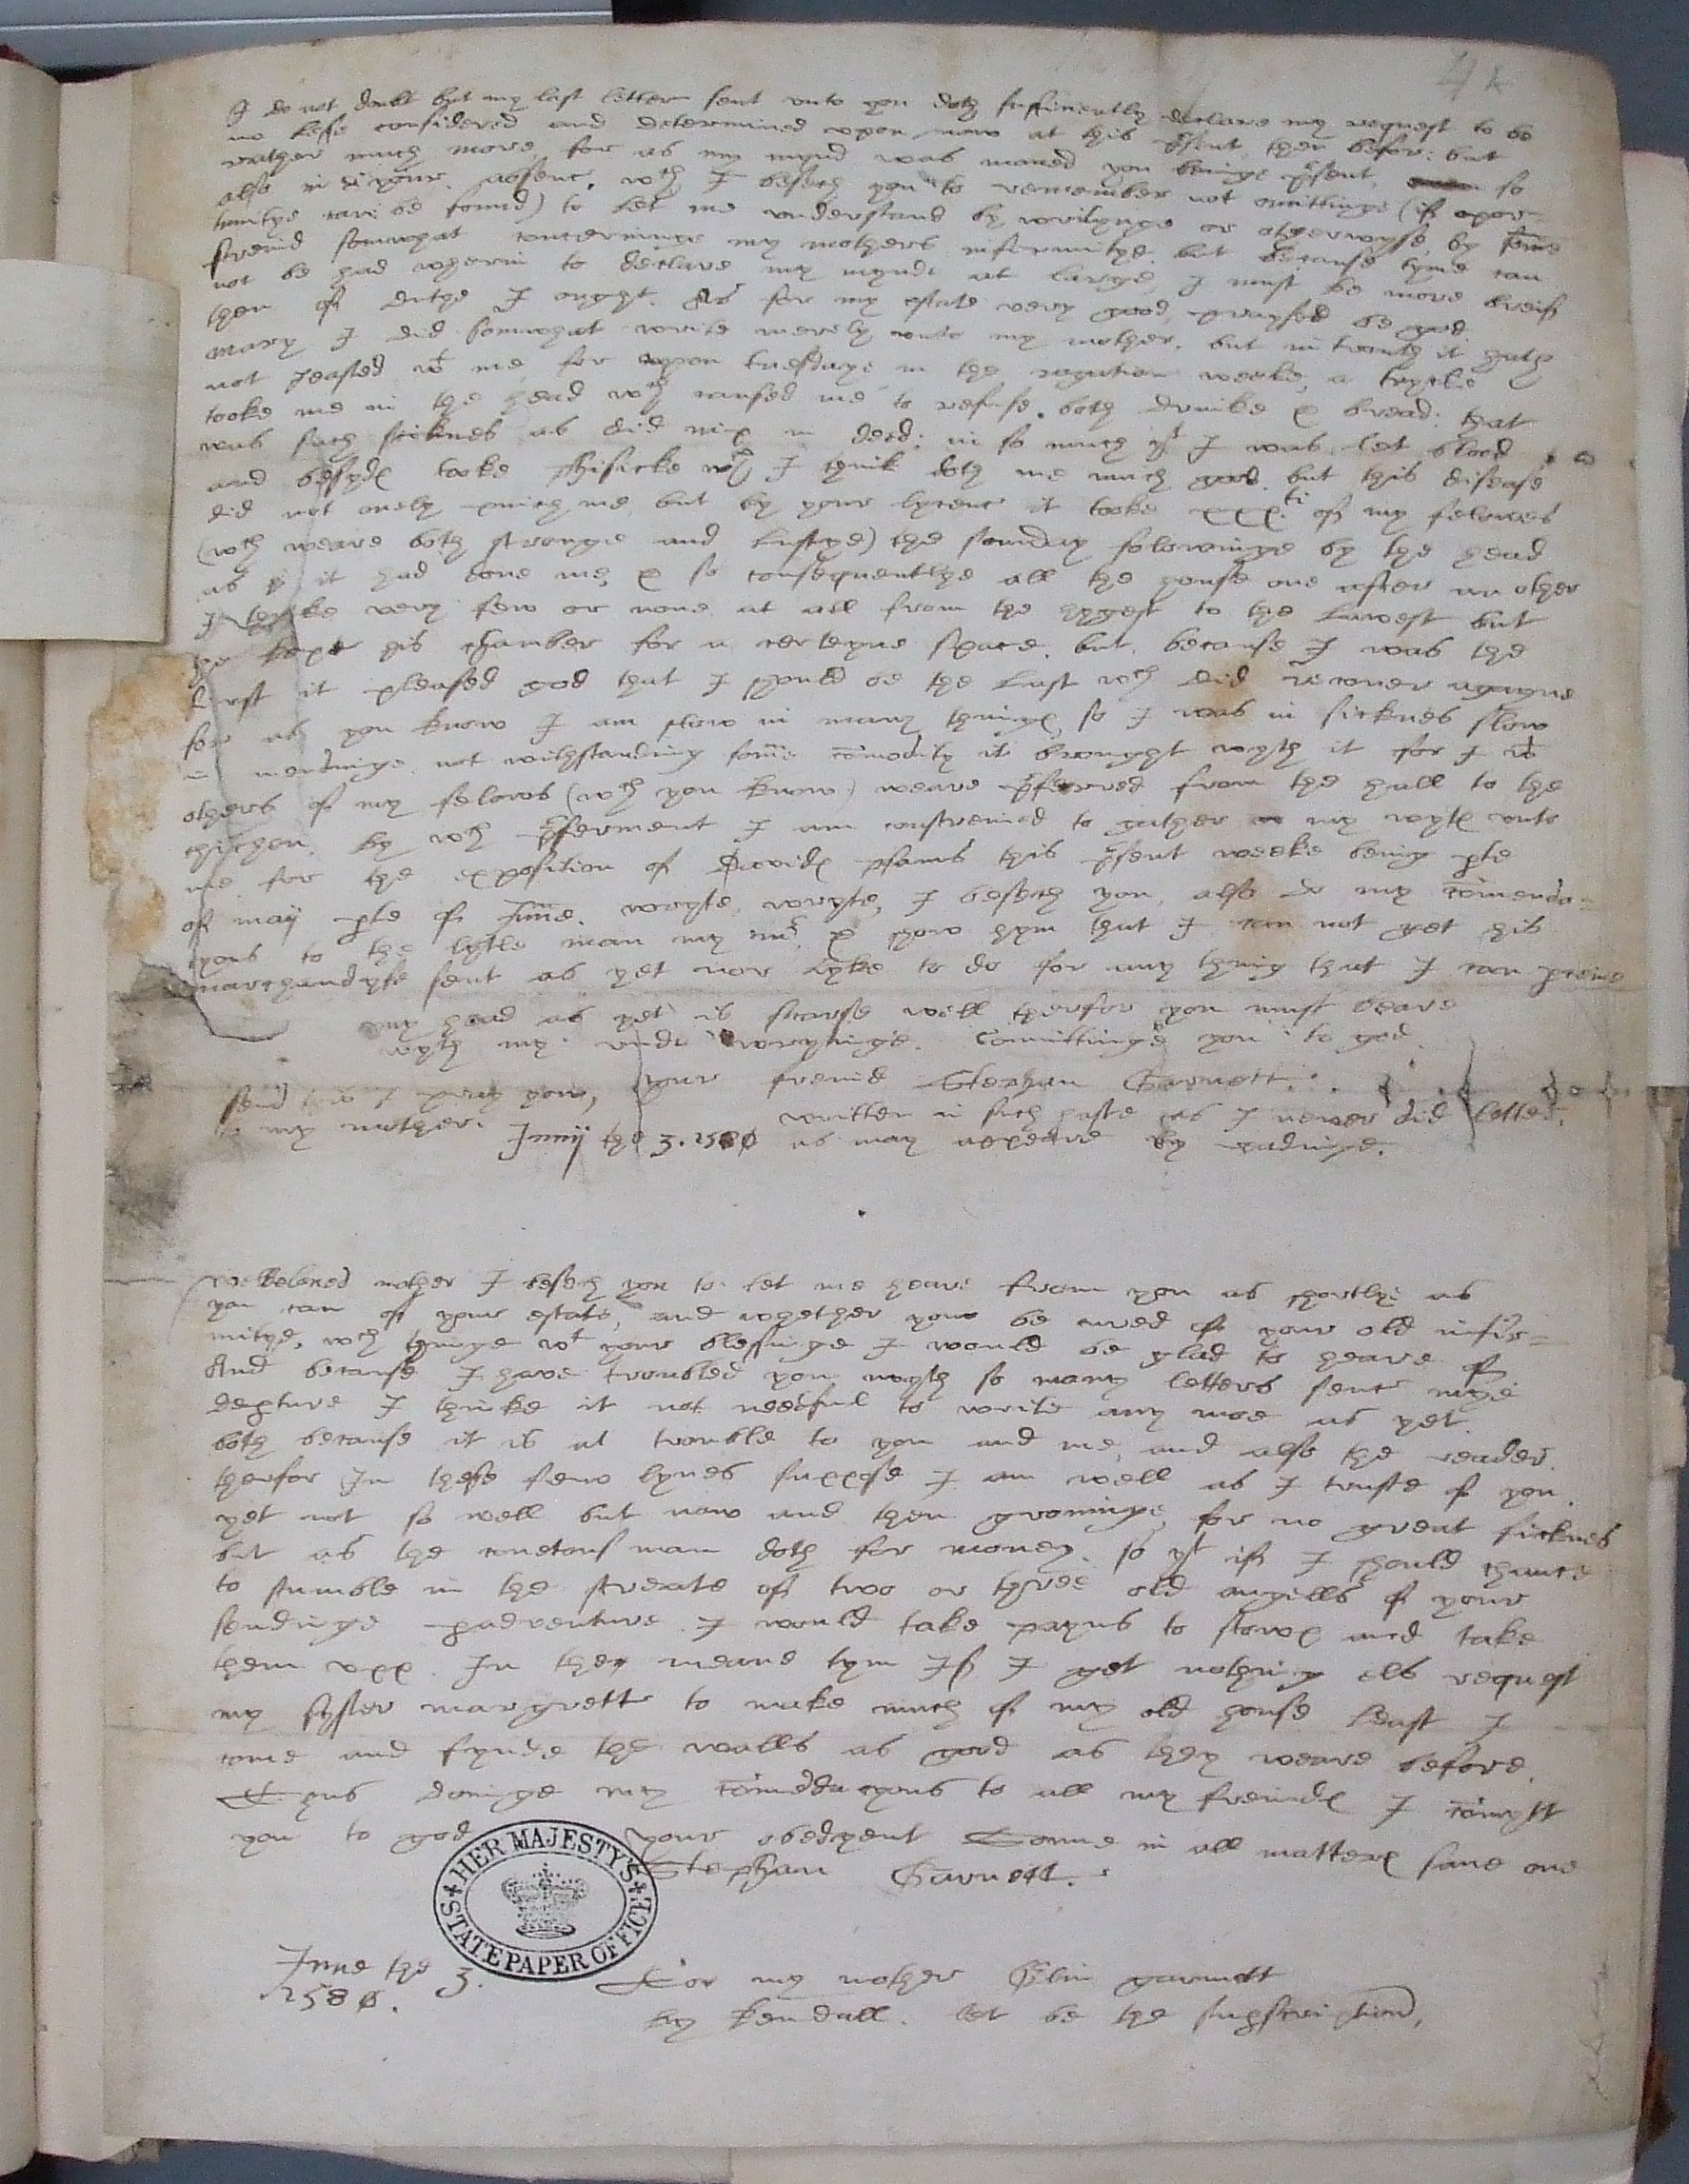 I do not doubt but my last letter sent unto you doth sufficiently declare my request to be
no lesse considered and determined upon now at this psent then before: but
rather much more, for as my mynd was moved you beinge psent, so
also in your absenc, wch I besech you to remember not omittinge (if opor=
tunitye can be found) to let me understand by writynge or otherwyse, by some
freind somwhat concerninge my mothers infirmitye. but because tyme can
not be had wherin to declare my mynde at large, I must be more breif
then of dutye I ought. As for my estate very good, praysed be god.
mary I did somwhat write merely unto my mother. but in trouth it hath
not jeasted wt me, for upon tuesdaye in the rogation weeke, a
tooke me in the head wch caused me to refuse both drinke & bread: that
was such sicknes as did nip in deed: in so much yt I was let blood
and besydes tooke phisicke wch I think doth me much good. but this disease
did not onely pinch me, but by your lycenc it tooke xxx.ti of my felowes
(wch weare both stronge and lustye) the sonday folowinge by the head
as it had done me, & so consequentlye all the house one after an other
I thinke very few or none at all from the hygest to the lawest but
he kept his chamber for a certeyne space. but because I was the
first it pleased god that I should be the last wch did recover agayne
for as you know I am slow in many thinges so I was in sicknes slow
in mendinge. not withstanding some comodity it brought wyth it for I wt
others of my felows (wch you know) weare pferred from the hall to the
chichen, by wch pferment I am constreined to gather my wytes unto
me for the exposition of Davides psams this psent weeke being pte
of maij pte of June. wryte, wryte, I besech you, also do my comenda=
tyons to the lytle man my mr & show hym that I can not get his
marchandyse sent as yet nor lyke to do for any thing that I can pceive
my head as yet is scarse well therfor you must beare
wyth my rude wrytinge. Committinge you to god.
your freind Stephan Garnett.
send this I pray you,
to my mother.
written in such haste as I never did letter,
Junij the 3. 1580 as may appeare by readinge.
Welbeloved mother I besech you to let me heare from you as shortlye as
you can of your estate, and whether you be cured of your old infir=
mitye, wch thinge wt your blessinge I would be glad to heare of
And because I have troubled you wyth so many letters senc mye
depture I thinke it not needful to write any moe as yet.
both because it is at trouble to you and me, and also the reader.
therfor In these few lynes suppose I am well as I truste of you.
yet not so well but now and then groninge, for no great sicknes
but as the covetous man doth for money. so yt if I should chance
to stumble in the streate of two or three old angells of your
sendinge padventure I would take payns to stowp and take
them upp. In they meane tym If I get nothing els request
my syster margrett to make much of my old house least I
come and fynde the walls as good as they weare before.
Thus doinge my comedacyons to all my freindes I comytt
you to god
your obedyent Sonne in all matters save one
Stephan Garnett.
HER MAJESTY'S STATE PAPER OFFICE
June the 3.
1580.
For my mother Elin garnett
by kendall. let be the supscription,